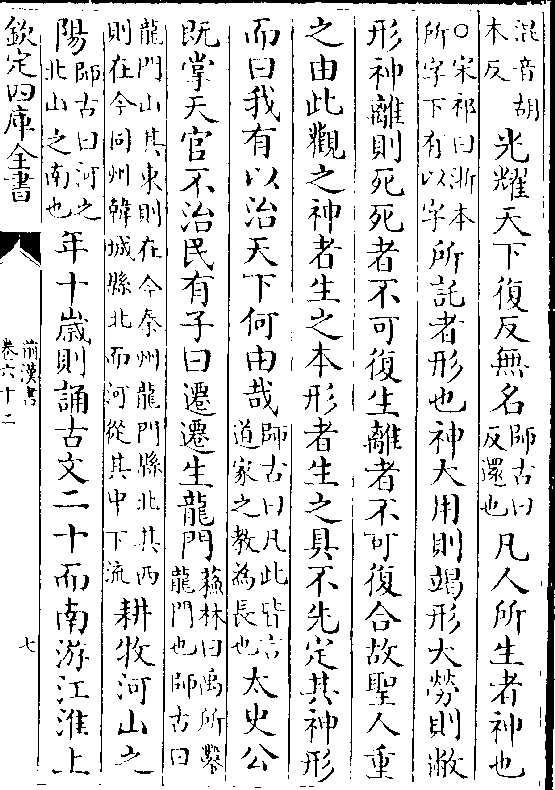 混音胡本反光耀天下復反無名師古曰反還也凡人所生者神也
○宋祁曰浙本所字下有以字所託者形也神大用則竭形大勞則敝
形神離則死死者不可復生離者不可復合故聖人重
之由此觀之神者生之本形者生之具不先定其神形
而曰我有以治天下何由哉師古曰凡此皆言道家之教為長也太史公
既掌天官不治民有子曰遷遷生龍門蘇林曰禹所鑿龍門也師古曰
龍門山其東則在今秦州龍門縣北其西則在今同州韓城縣北而河從其中下流耕牧河山之
陽師古曰河之北山之南也年十歲則誦古文二十而南游江淮上
欽定四庫全書
前漢書
卷六十二
七